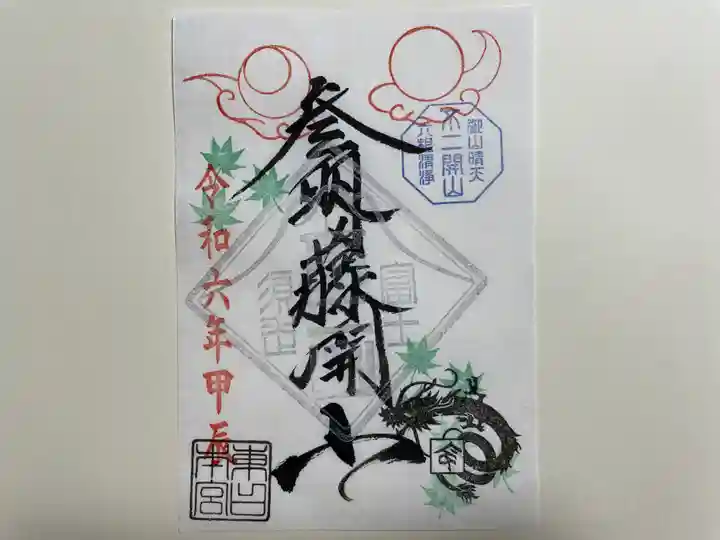 御山晴天
不二開山
六根清浄
参明藤開山
富士
須走
令和六年甲辰
東口
本宮